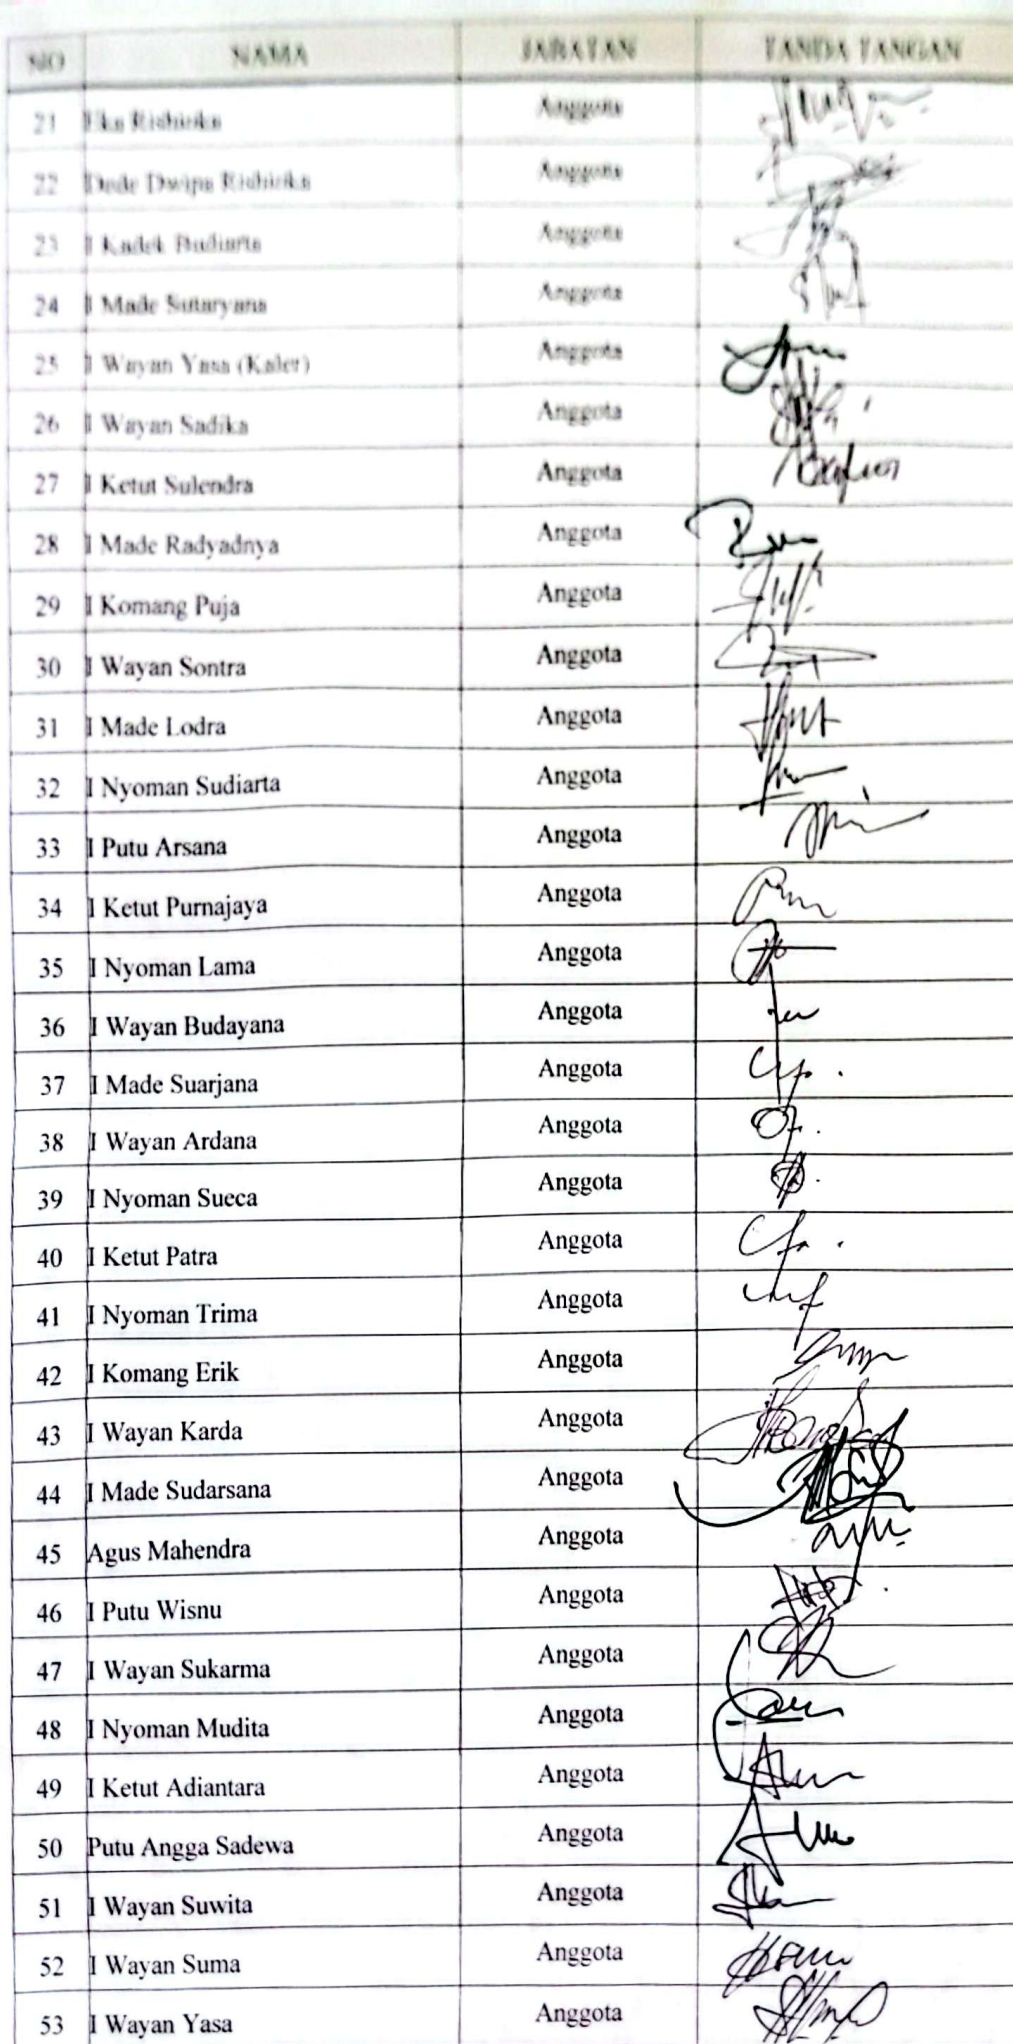 NO NAMA JABATAN TANDA TANGAN
21 Eka Anggota
22 Dede Dwipa Anggota
23 I Kadek Budiarta Anggota
24 I Made Sutaryana Anggota
25 I Wayan Yasa (Kaler) Anggota
26 I Wayan Sadika Anggota
27 I Ketut Sulendra Anggota
28 I Made Radyadnya Anggota
29 I Komang Puja Anggota
30 I Wayan Sontra Anggota
31 I Made Lodra Anggota
32 I Nyoman Sudiarta Anggota
33 I Putu Arsana Anggota
34 I Ketut Purnajaya Anggota
35 I Nyoman Lama Anggota
36 I Wayan Budayana Anggota
37 I Made Suarjana Anggota
38 I Wayan Ardana Anggota
39 I Nyoman Sueca Anggota
40 I Ketut Patra Anggota
41 I Nyoman Trima Anggota
42 I Komang Erik Anggota
43 I Wayan Karda Anggota
44 I Made Sudarsana Anggota
45 Agus Mahendra Anggota
46 I Putu Wisnu Anggota
47 I Wayan Sukarma Anggota
48 I Nyoman Mudita Anggota
49 I Ketut Adiantara Anggota
50 Putu Angga Sadewa Anggota
51 I Wayan Suwita Anggota
52 I Wayan Suma Anggota
53 I Wayan Yasa Anggota